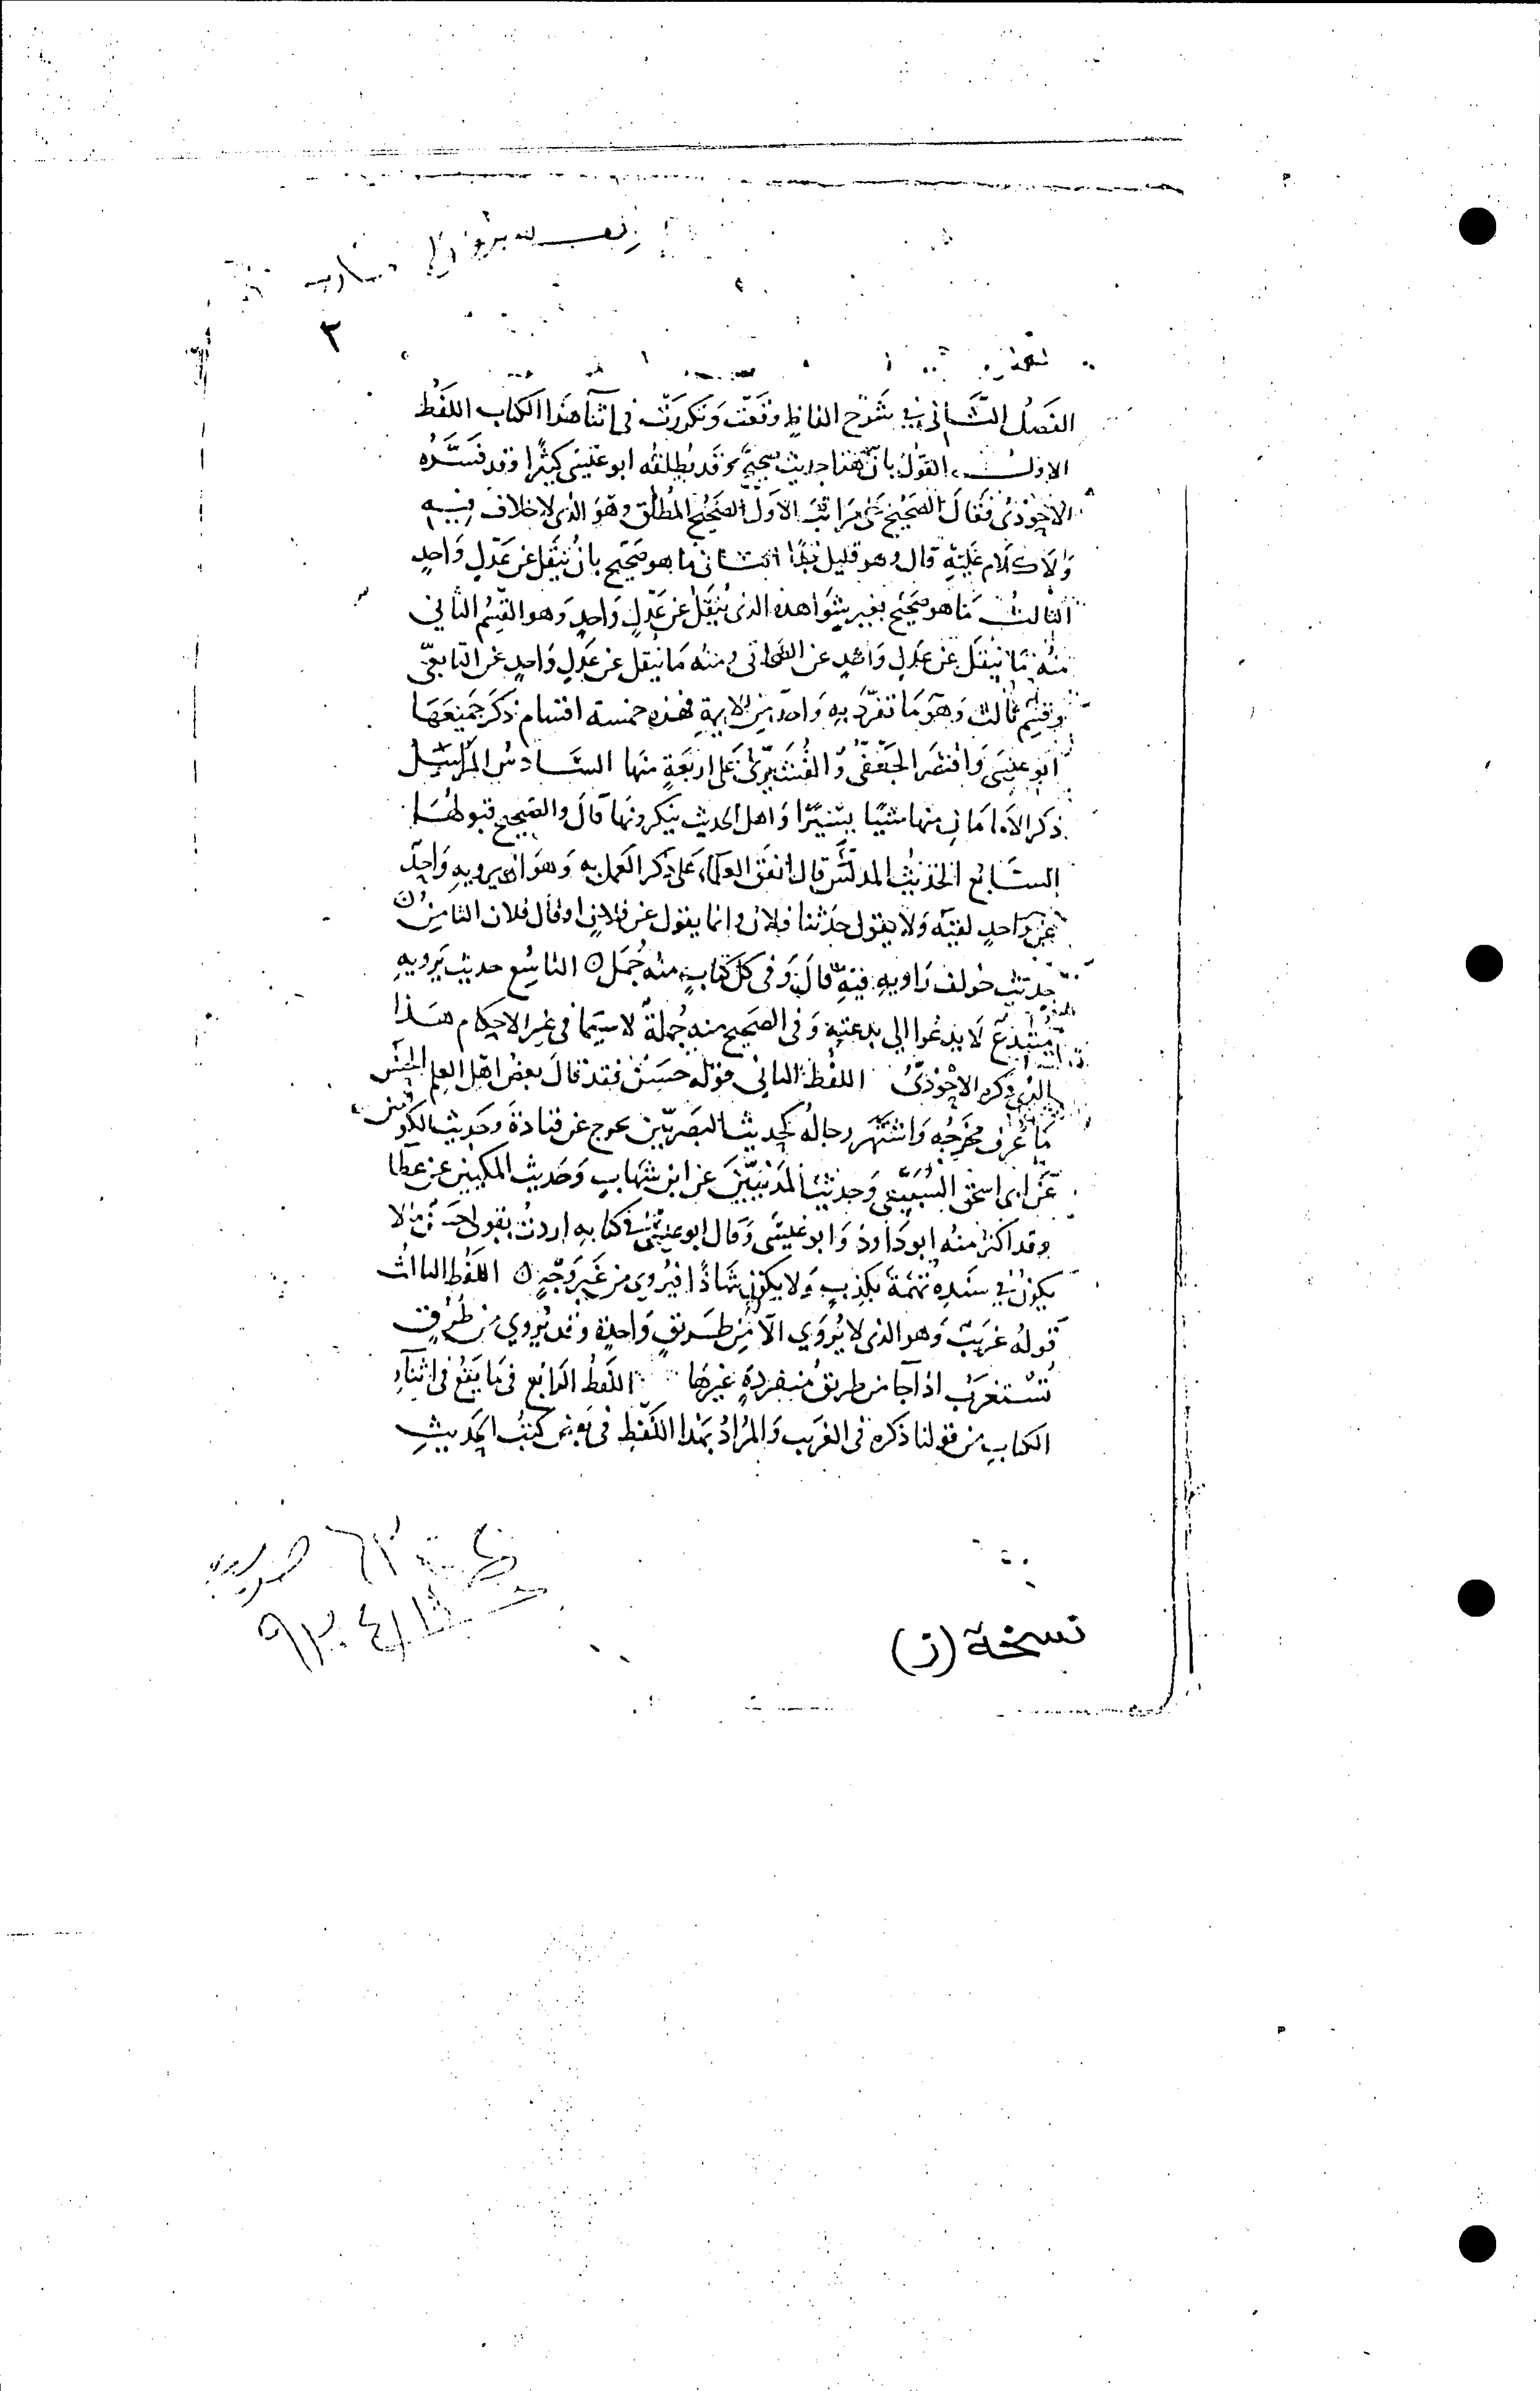 ٣
الفَصْلُ الثَّاني في شَرْح الفاظٍ وَقَعَتْ وَتكرَرَتْ في اثنآ هَذا الكتاب اللَفْظ
الاولُ القَوْلُ بانّ هَذا حديث صحيحٌ وقد يُطلقه ابو عيْسَى كثيرًا وقد فسَّرَهُ
الاحْوَذىُّ فَقالَ الصَحِيْحُ عَلى مَراتبَ الاوَلُ الصَحِيْحُ المُطْلَق وهوَ الذي لاخلافَ فيه
وَلا كلام عَليْهِ قال وهو قليل جدًا الثاني ما هو صَحيْح بانْ يُنقَل عن عَدْلٍ وَاحدٍ
الثالثُ مَا هو صَحيْح بغير شَوَاهده الذي يُنقَلُ عن عَدْلٍ وَاحدٍ وَهو القِسْمُ الثاني
منْهُ مَا يُنقَل عن عَدلٍ وَاحدٍ عن الصَحابي ومنْه مَا يُنقل عن عَدلٍ وَاحدٍ عن التابعيّ
وقسْمٌ ثالث وَهوَ مَا تفرَّدَ بهِ وَاحدٌ من الايمةِ فهذه خمسة اقسام ذكَرَ جَميْعَهَا
ابو عيْسَى وَاقتصَرَ الجُعْفيُّ وَالقُشَيْرىُّ عَلى اربَعَةٍ منها السَّادسُ المَرَاسِيْلُ
ذكر الامامَانِ منها شيئًا يسيْرًا وَاهل الحديث ينكرونهَا قالَ والصَحِيحُ قبولهَا
السَّابع الحَديْثُ المدلَّسُ قال اتفق العلمآء عَلى ذكر العَمل به وَهوَ ان يرويهِ وَاحدٌ
عن وَاحدٍ لقيَه وَلا يقول حدّثنا فلان وانما يقول عن فلانٍ او قال فلان الثامنُ
حديث خولفَ رَاويهِ فيهِ قالَ وَفي كل كتابٍ منه جُمَل التاسع حديث يَرويهِ
مُبْتَدِعٌ لا يدعوا الي بدعتهِ وَفي الصَحيح منه جُملةٌ لاسيَّما في غير الاحكام هَذا
الذي ذكره الاحْوَذىُّ اللفظُ الثاني قوله حسَنٌ فقد قالَ بعضُ اهْل العلم الحسَن
مَا عُرفَ مَخْرَجُه وَاشتَهَر رجالُه كحديث البَصريّين يخرج عن قتادةَ وَحديث الكوفيين
عَن ابي اسحٰق السَّبيْعي وَحديْث المَدَنيّيْنَ عن ابن شهَابٍ وَحديث المكيين عن عطا
وقد اكثر منْه ابو دَاودَ وَابو عيسَى وَقال ابو عيْسَى في كتابه اردتُ بقولي حَسَن مالا
يكونُ في سندِهِ مُتّهَمٌ بكذبٍ وَلا يكون شَاذًا فيُروى من غَيْرِ وَجْهٍ اللَفْظ الثالثُ
قولهُ غريْبٌ وَهو الذي لا يُروَي الا من طريقٍ وَاحدةٍ وقد يُروي من طرقٍ
تُسْتغرَبُ اذا جآ من طريقٍ منفردةٍ غيرهَا اللَفظُ الرَابع في مَا يَقَعُ في اثنآءِ
الكتابِ من قولنا ذكره في الغريب وَالمُرادُ بهَذا اللَفْظِ في بعض كتبُ الحَديثِ
نسخة (ز)